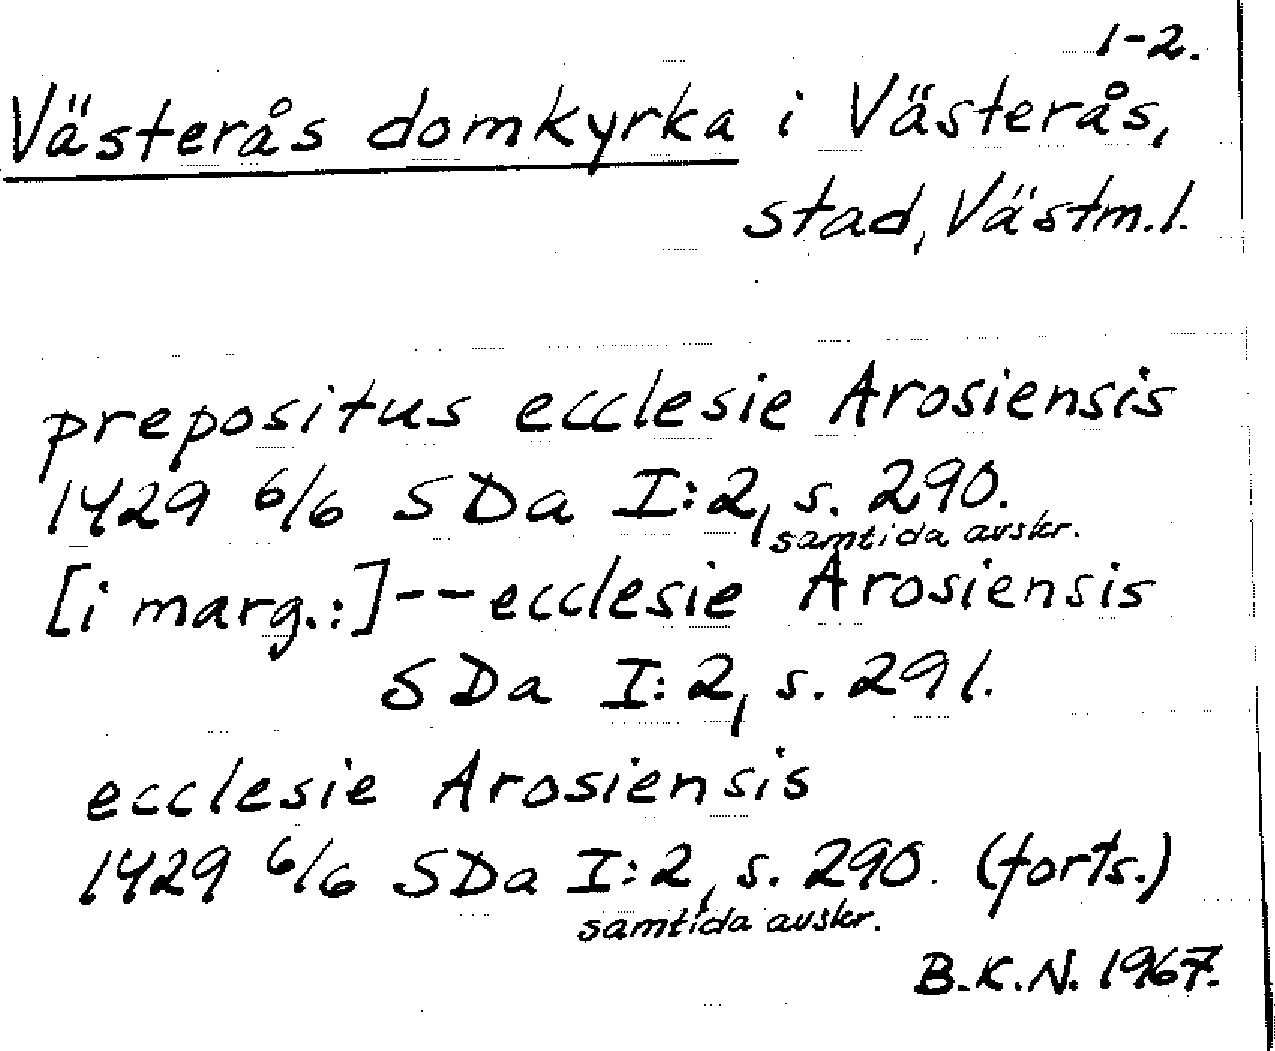 1-2.
Västerås domkyrka i Västerås,
stad, Västm.l.
prepositus ecclesie Arosiensis
1429 6/6 SDa I:2, s. 290.
samtida avskr.
[i marg.:]--ecclesie Arosiensis
SDa I:2, s. 291.
ecclesie Arosiensis
1429 6/6 SDa I:2, s. 290. (forts.)
samtida avskr.
B.K.N. 1967.